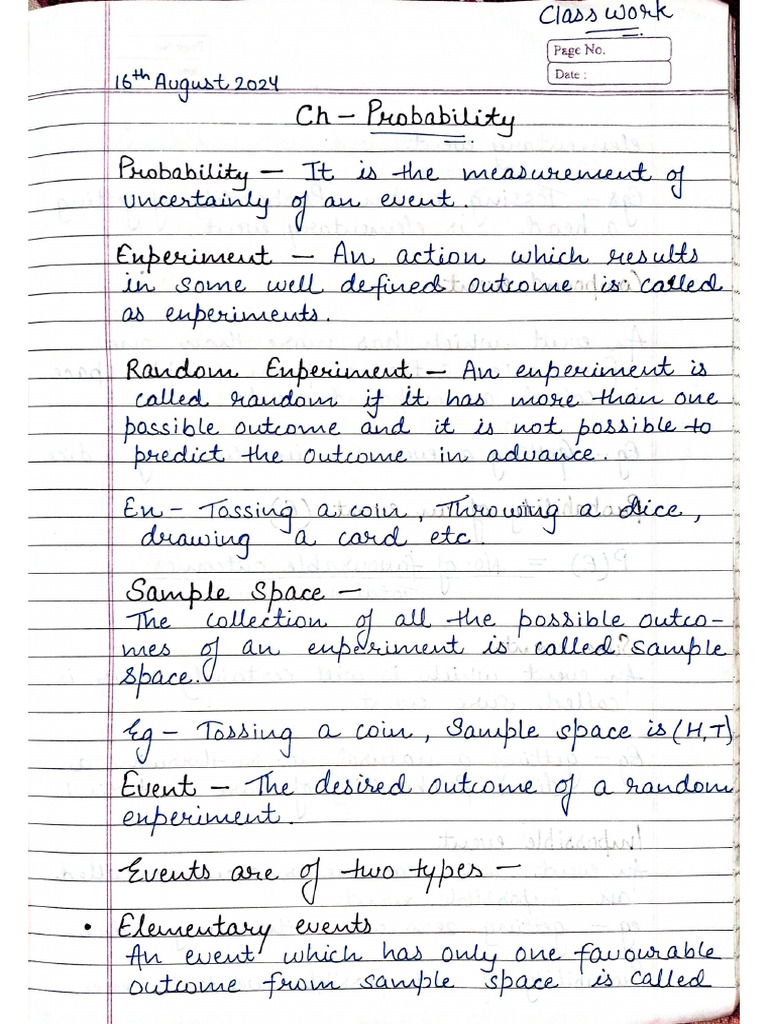 Class work
Page No.
Date :
16th August 2024
Ch - Probability
Probability - It is the measurement of
uncertainly of an event.
Experiment - An action which results
in some well defined outcome is called
as experiments.
Random Experiment - An experiment is
called random if it has more than one
possible outcome and it is not possible to
predict the outcome in advance.
Ex - Tossing a coin, Throwing a dice,
drawing a card etc.
Sample Space -
The collection of all the possible outco-
mes of an experiment is called sample
space.
Eg - Tossing a coin, Sample space is (H,T)
Event - The desired outcome of a random
experiment.
Events are of two types -
• Elementary events
An event which has only one favourable
outcome from sample space is called